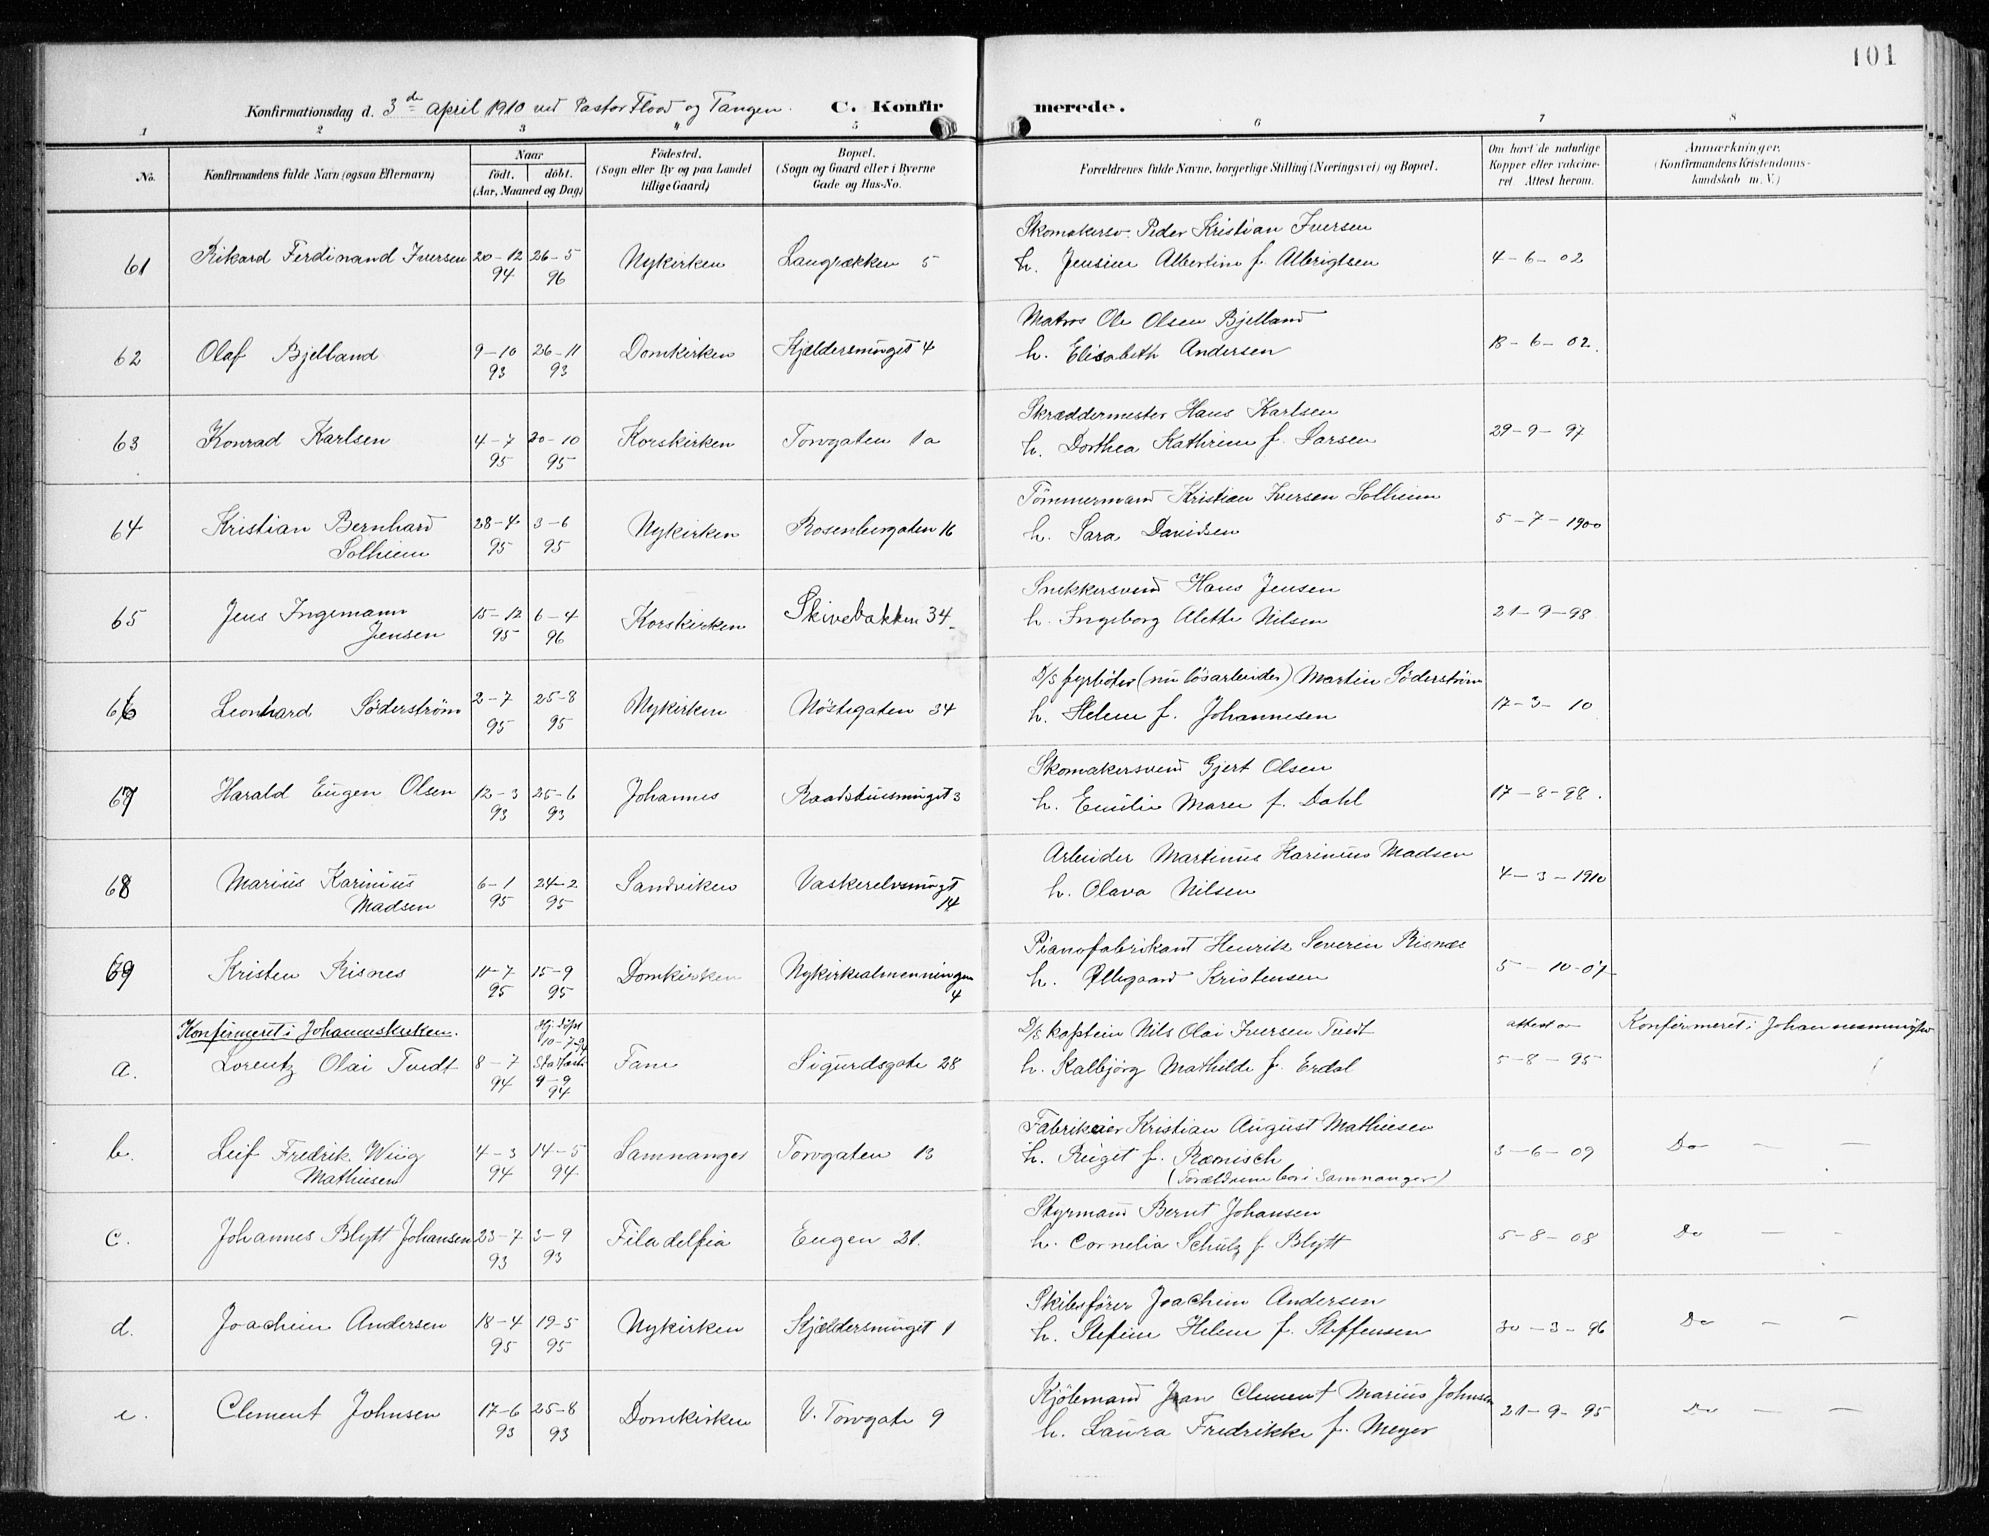 101
Konfirmationsdag d. 3de april 1910 ved Pastor Flood og Tangen. C. Konfirmerede.
1 2 3 4 5 6 7 8
No. Konfirmandens fulde Navn (ogsaa Efternavn) Naar födt. döbt. (Aar, Maaned og Dag) Födested. (Sogn eller By og paa Landet tillige Gaard) Bopæl. (Sogn og Gaard eller i Byerne Gade og Hus-No. Forældrenes fulde Navne, borgerlige Stilling (Næringsvei) og Bopæl. Om havt de naturlige Kopper eller vakcineret. Attest herom. Anmærkninger. (Konfirmandens Kristendomskundskab m. V.)
Skomakersv. Peder Kristian Iversen
61 Rikard Ferdinand Iversen 20-12 94 26-5 96 Nykirken Langrækken 5 h. Jensine Albertine f. Albrigtsen 4-6-02
Matros Ole Olsen Bjelland
62 Olaf Bjelland 9-10 93 26-11 93 Domkirken Kjeldersmuget 4 h. Elisabeth Andersen 18-6-02.
Skræddermester Hans Karlsen
63 Konrad Karlsen 4-7 95 20-10 95 Korskirken Torvgaten 1a h. Dorthea Kathrine f. Larsen 29-9-97
Tömmermand Kristian Iversen Solheim
64 Kristian Bernhard Solheim 28-4 95 3-6 95 Nykirken Rosenbergaten 16 h. Sara Davidsen 5-7-1900
Snekkersvend Hans Jensen
65 Jens Ingemann Jensen 15-12 95 6-4 96 Korskirken Skivebakken 34 h. Ingeborg Alette Nilsen 21-9-98
D/S fyrböter (nu lösarbeider) Martin Söderström
66 Leonhard Söderström 2-7 95 25-8 95 Nykirken Nöstegaten 34 h. Helene f. Johannesen 17-3-10
Skomakersvend Gjert Olsen
67 Harald Eugen Olsen 12-3 93 25-6 93 Johannes Raadshussmuget 3 h. Emilie Maren f. Dahl 17-8-98.
Arbeider Martinus Karinius Madsen
68 Marius Karinius Madsen 6-1 95 24-2 95 Sandviken Vaskerelvsmuget 14 h. Olava Nilsen 4-3-1910
Pianofabrikant Henrik Severin Risnes
69 Kristen Risnes 11-7 95 15-9 95 Domkirken Nykirkealmenningen 4 h. Øllegaard Kristensen 5-10-07
Konfirmeret i Johanneskirken.
D/S kaptein Nils Olai Iversen Tvedt attest av Konfirmeret i Johannesmenighe
a. Lorentz Olai Tvedt 8-7 94 Hj. döpt 10-7-94 Stadfæst 9-9 94 Fane Sigurdsgate 28 h. Kalbjörg Mathilde f. Erdal 5-8-95
Fabrikeier Kristian August Mathiesen
b. Leif Fredrik Wiig Mathiesen 4-3 94 14-5 94. Samnanger Torvgaten 13 h. Birget f. Ræmisch 3-6-09 Do — —
(Forældrene bor i Samnanger)
Styrmand Bernt Johansen
c. Johannes Blytt Johansen 23-7 93 3-9 93 Filadelfia Engen 21. h. Cornelia Schulz f. Blytt 5-8-08 Do — -
Skibsförer Joachim Andersen
d. Joachim Andersen 18-4 95 19-5 95 Nykirken Kjeldersmuget 1 h. Stefine Helene f. Steffensen 30-3-96 Do — —
Kjöbmand Jean Clement Marius Johnsen
e. Clement Johnsen 17-6 93 25-8 93 Domkirken V. Torvgate 9 h. Laura Fredrikke f. Meyer 21-9-95 Do — —